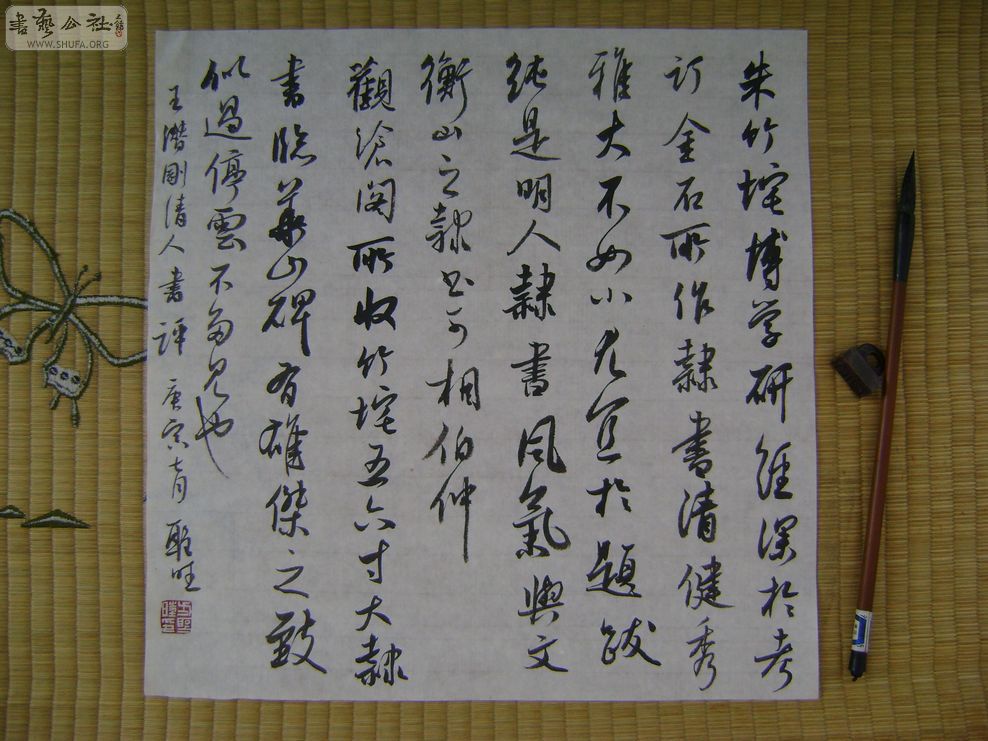 朱竹垞博学研經深於考
訂金石所作隸書清健秀
雅大不如小尤宜於題跋
純是明人隸書風氣與文
衡山之隸书可相伯仲
觀滄阁所收竹垞五六寸大隸
書臨華山碑有雄傑之致
似過停雲不多见也
王潛剛清人書評 庚寅七月
書藝公社
WWW.SHUFA.ORG